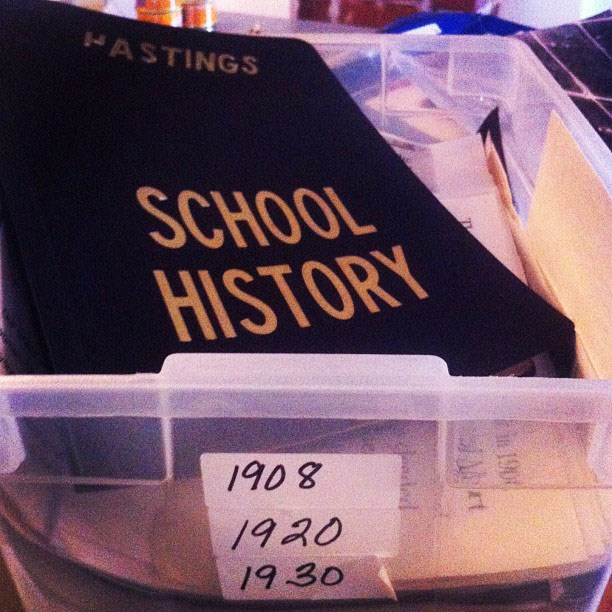 HASTINGS
SCHOOL
HISTORY
1908
1920
1930